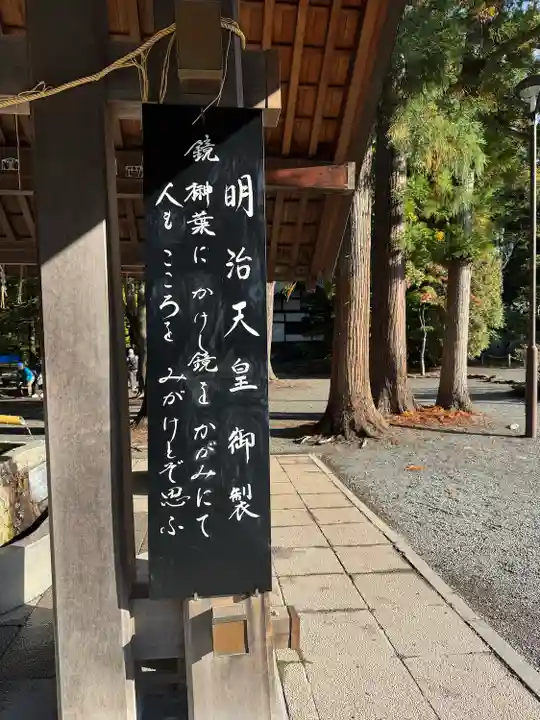 明治天皇御製
鏡 榊葉に かけし鏡を かがみにて
人も こころを みがけとぞ思ふ